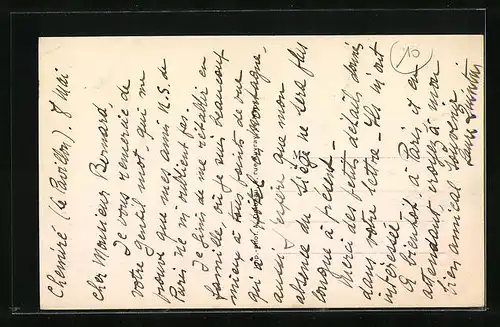 Cheméré (Le Pavillon). 8 Mai
Cher Monsieur Bernard,
Je vous remercie de
votre gentil mot, qui me
prouve que mes amis U.S. de
Paris ne m'oublient pas.
Je finis de me rétablir en
famille où je suis beaucoup
mieux à tous points de vue
qu'à la montagne,
aussi j'espère que mon
absence du siège ne sera plus
longue à présent -
Merci des petits détails donnés
dans votre lettre - Ils m'ont
intéressée
A bientôt à Paris et en
attendant croyez à mon
bien amical souvenir
10